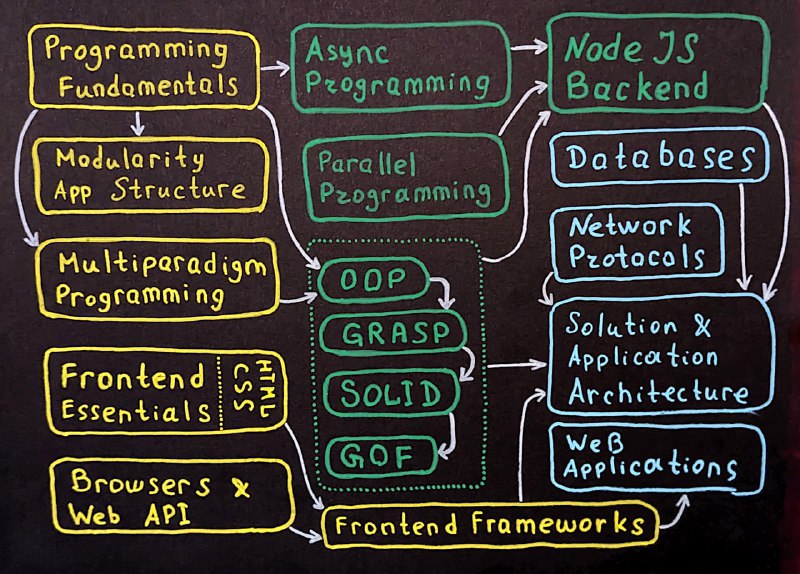 Programming
Fundamentals
Async
Programming
Node JS
Backend
Modularity
App Structure
Parallel
Programming
Databases
Network
Protocals
Multiparadigm
Programming
OOP
GRASP
SOLID
GOF
Solution &
Application
Architecture
Frontend
Essentials
HTML
CSS
WeB
Applications
Browsers &
Web API
Frontend Frameworks